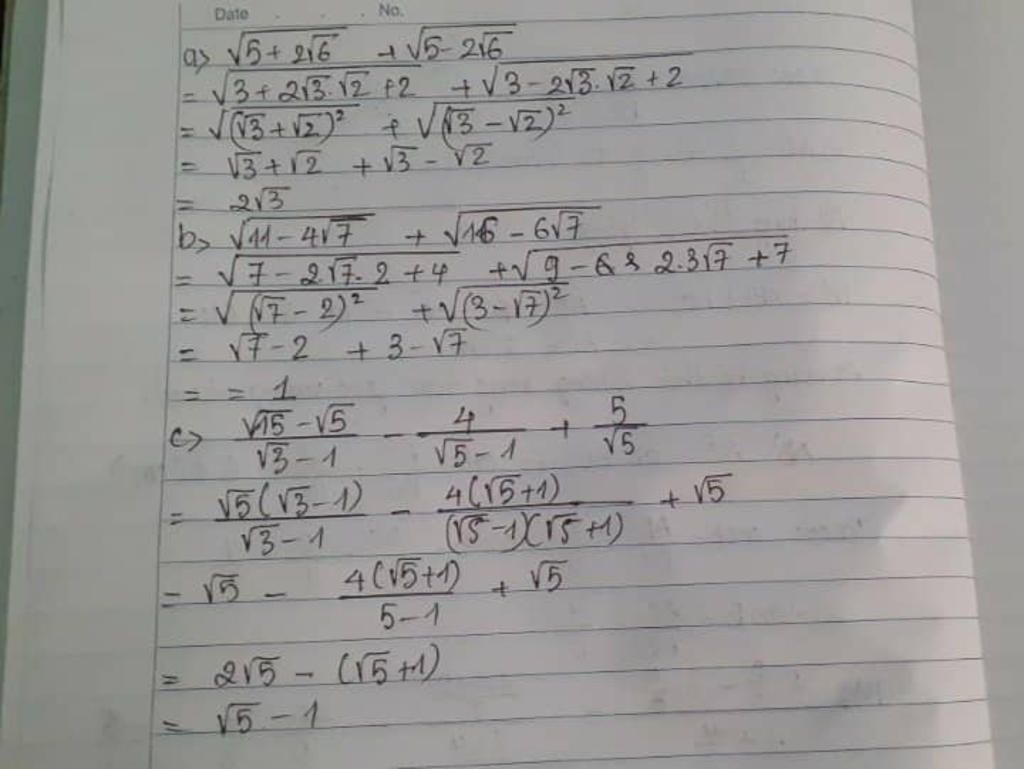 Date . . . No.
a> √(5+2√6) + √(5-2√6)
= √(3+2√3.√2+2) + √(3-2√3.√2+2)
= √((√3+√2)²) + √((√3-√2)²)
= √3+√2 + √3-√2
= 2√3
b> √(11-4√7) + √(16-6√7)
= √(7-2√7.2+4) + √(9- 2.3√7+7)
= √((√7-2)²) + √((3-√7)²)
= √7-2 + 3-√7
= = 1
c> (√15-√5)/(√3-1) - 4/(√5-1) + 5/√5
= √5(√3-1)/(√3-1) - 4(√5+1)/((√5-1)(√5+1)) + √5
= √5 - 4(√5+1)/(5-1) + √5
= 2√5 - (√5+1)
= √5-1